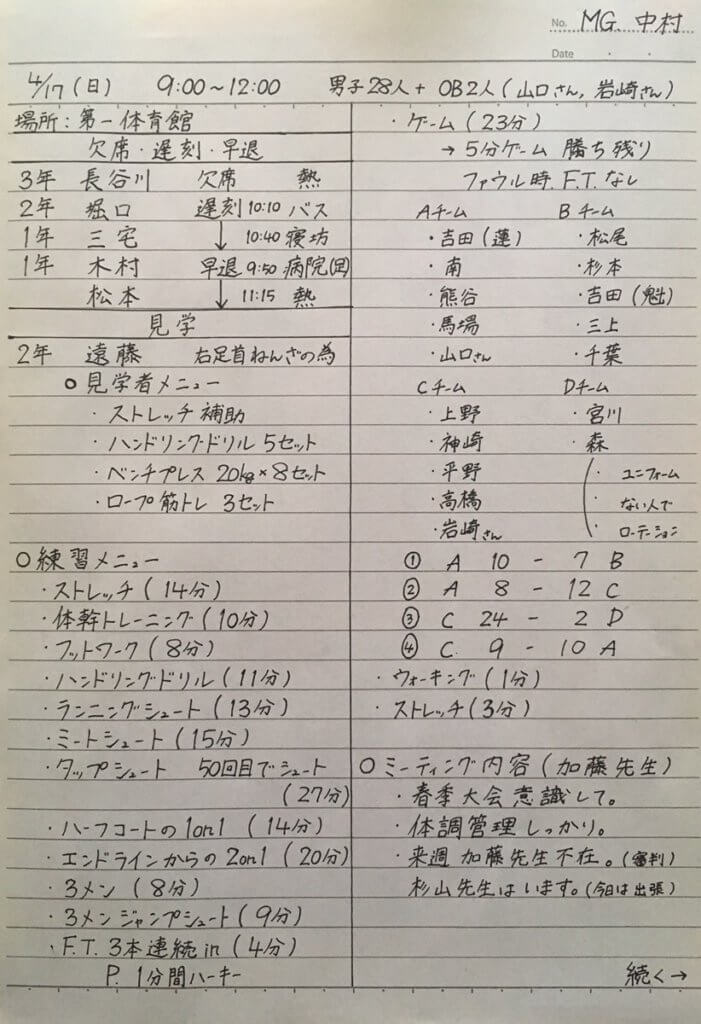 No. MG. 中村
Date ・ ・
4/17(日) 9:00～12:00 男子28人+OB2人(山口さん,岩崎さん)
場所:第一体育館
欠席・遅刻・早退
3年 長谷川 欠席 熱
2年 堀口 遅刻10:10 バス
1年 三宅 ↓ 10:40 寝坊
1年 木村 早退9:50 病院(足)
松本 ↓ 11:15 熱
見学
2年 遠藤 右足首ねんざの為
○見学者メニュー
・ストレッチ補助
・ハンドリングドリル 5セット
・ベンチプレス 20kg×8セット
・ロープ筋トレ 3セット
○練習メニュー
・ストレッチ(14分)
・体幹トレーニング(10分)
・フットワーク(8分)
・ハンドリングドリル(11分)
・ランニングシュート(13分)
・ミートシュート(15分)
・タップシュート 50回目でシュート
(27分)
・ハーフコートの1on1(14分)
・エンドラインからの2on1(20分)
・3メン(8分)
・3メンジャンプシュート(9分)
・F.T. 3本連続in(4分)
P. 1分間ハーキー
・ゲーム(23分)
→5分ゲーム 勝ち残り
ファウル時 F.T.なし
Aチーム Bチーム
・吉田(蓮) ・松尾
・南 ・杉本
・熊谷 ・吉田(魁)
・馬場 ・三上
・山口さん ・千葉
Cチーム Dチーム
・上野 ・宮川
・神崎 ・森
・平野 ・ユニフォーム
・高橋 ・ない人で
・岩崎さん ・ローテーション
① A 10 - 7 B
② A 8 - 12 C
③ C 24 - 2 D
④ C. 9 - 10 A
・ウォーキング(1分)
・ストレッチ(3分)
○ミーティング内容(加藤先生)
・春季大会意識して。
・体調管理しっかり。
・来週加藤先生不在。(審判)
杉山先生はいます。(今日は出張)
続く→